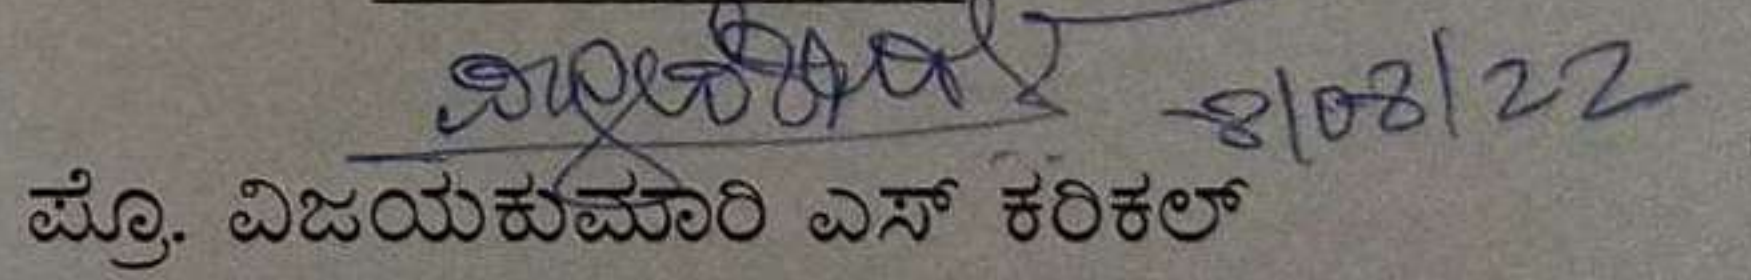 8/08/22
ಪ್ರೊ. ವಿಜಯಕುಮಾರಿ ಎಸ್ ಕರಿಕಲ್